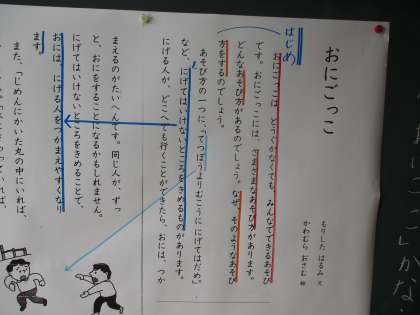 おにごっこ
もりした はるみ 文
かわむら おさむ 絵
はじめ
おにごっこは、どうぐがなくても、みんなでできるあそび
です。おにごっこには、さまざまなあそび方があります。
どんなあそび方があるのでしょう。なぜ、そのようなあそび
方をするのでしょう。
あそび方の一つに、「てつぼうよりむこうににげてはだめ。」
など、にげてはいけないところをきめるものがあります。
にげる人が、どこへでも行くことができたら、おには、つか
まえるのがたいへんです。同じ人が、ずっ
と、おにをすることになるかもしれません。
にげてはいけないところをきめることで、
おには、にげる人をつかまえやすくなり
ます。
また、「じめんにかいた丸の中にいれば、